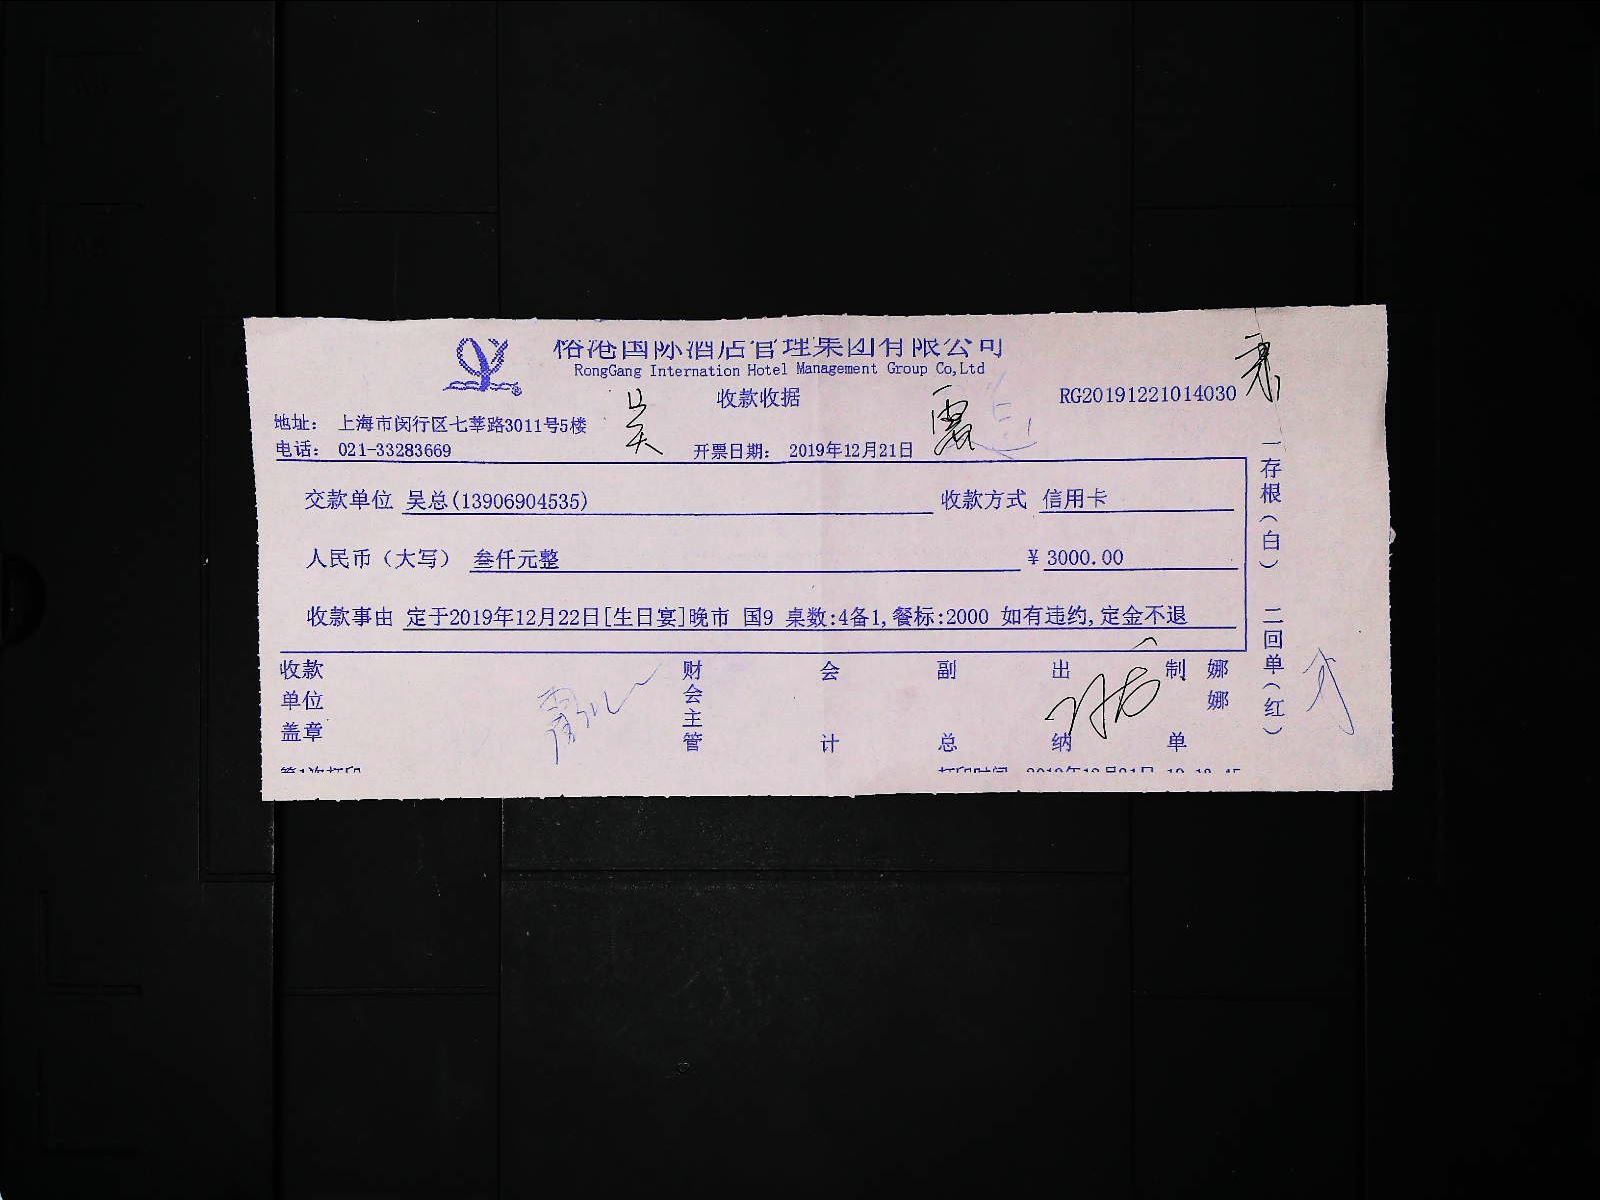 国际酒店管理集团有限公司
RongGang Internation Hotel Management Group Co,Ltd
收款收据
RG20191221014030
地址： 上海市闵行区七莘路3011号5楼
电话： 021-33283669
开票日期： 2019年12月21日
交款单位 吴总(13906904535) 收款方式 信用卡
人民币（大写） 叁仟元整 ¥ 3000.00
收款事由 定于2019年12月22日[生日宴]晚市 国9 桌数:4备1,餐标:2000 如有违约,定金不退
收款单位盖章
财会主管
会计
副总
出纳
制单
娜娜
一存根（白） 二回单（红）